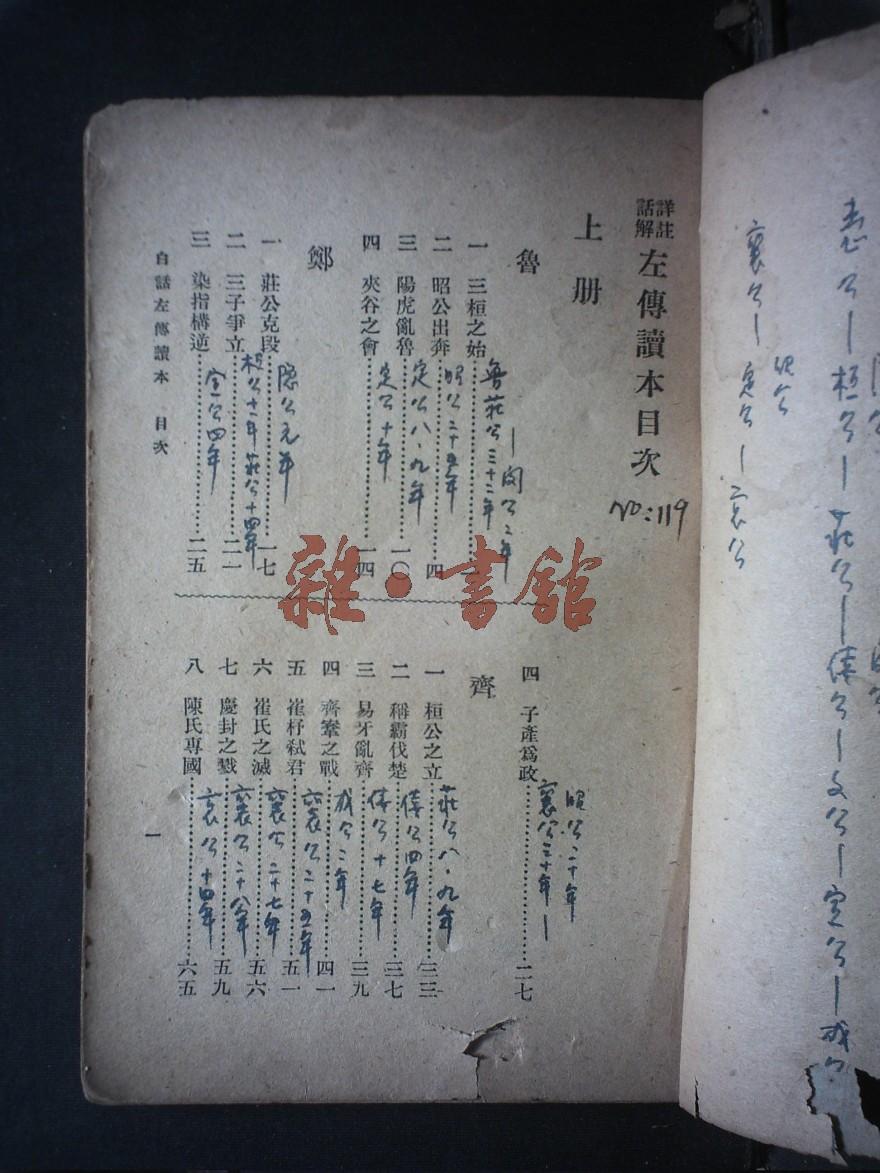 詳註
話解
左傳讀本目次
No:119
上册
魯
一 三桓之始 一
魯莊公三十二年
—閔公二年
二 昭公出奔 四
昭公二十五年
三 陽虎亂魯 一〇
定公八·九年
四 夾谷之會 一四
定公十年
鄭
一 莊公克段 一七
隱公元年
二 三子爭立 二一
桓公十一年莊公十四年
三 染指構逆 二五
宣公四年
四 子產爲政 二七
襄公三十年—
昭公二十年
齊
一 桓公之立 三三
莊公八·九年
二 稱霸伐楚 三七
僖公四年
三 易牙亂齊 三九
僖公十七年
四 齊鞌之戰 四一
成公二年
五 崔杼弒君 五一
襄公二十五年
六 崔氏之滅 五六
襄公二十七年
七 慶封之戮 五九
襄公二十八年
八 陳氏專國 六五
哀公十四年
白話左傳讀本 目次
一
雜·書館
襄公—定公—哀公
昭公